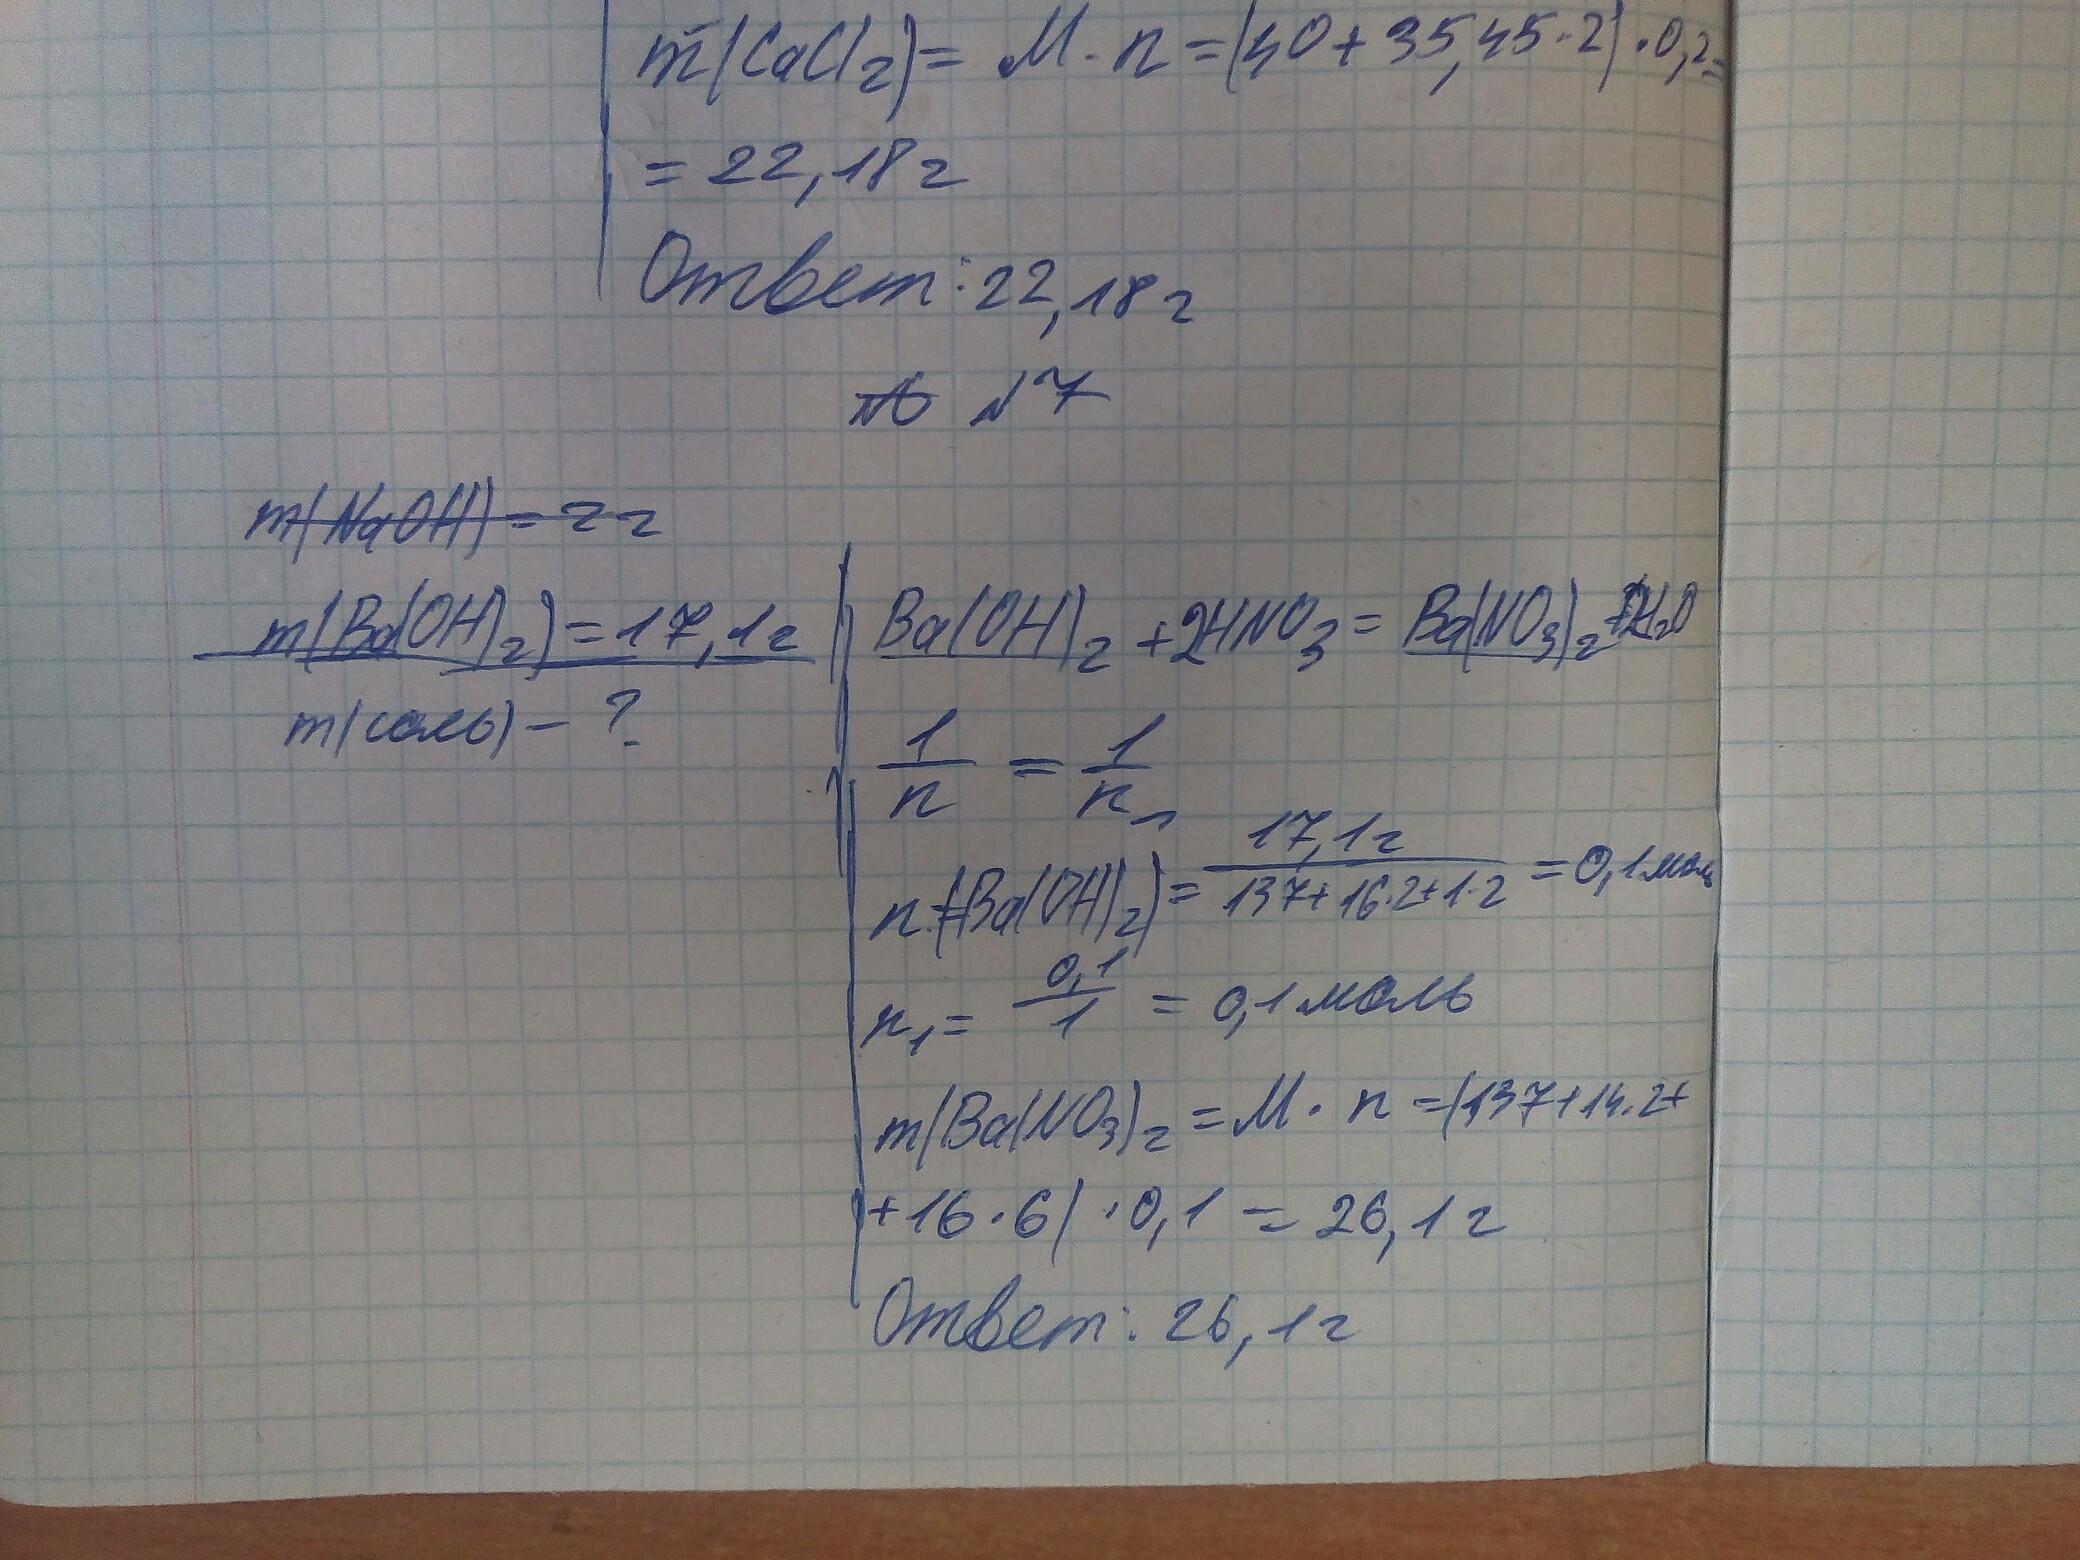 m(CaCl2) = M · n = (40 + 35,45 · 2) · 0,2 =
= 22,18 г
Ответ: 22,18 г
№7
m(NaOH) = 2 г
m(Ba(OH)2) = 17,1 г
m(соль) - ?
Ba(OH)2 + 2HNO3 = Ba(NO3)2 + 2H2O
1/n = 1/n1
n(Ba(OH)2) = 17,1 г / 137 + 16·2 + 1·2 = 0,1 моль
n1 = 0,1/1 = 0,1 моль
m(Ba(NO3)2 = M · n = (137 + 14·2 +
+ 16 · 6) · 0,1 = 26,1 г
Ответ: 26,1 г